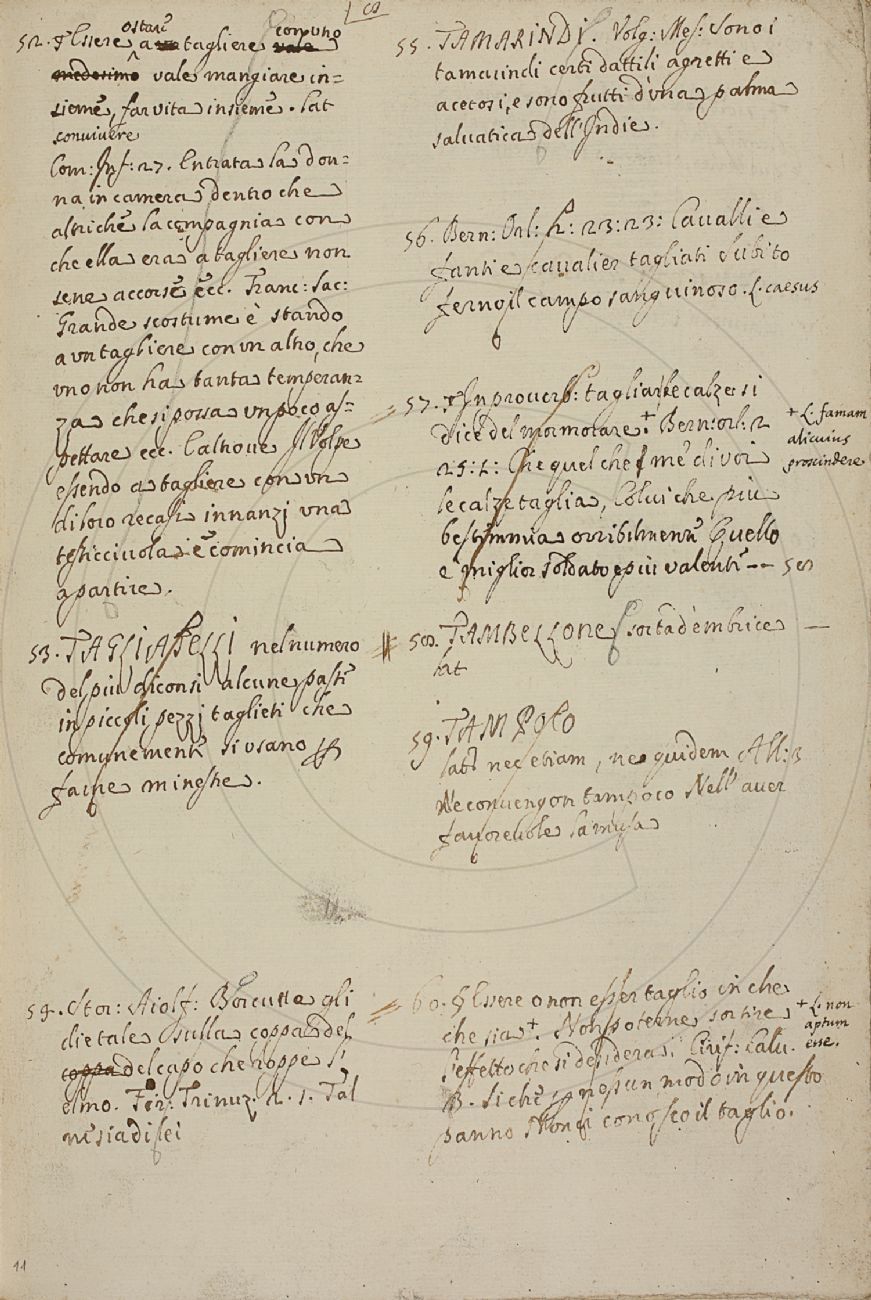 52. Essere o stare a un tagliere con uno vale
medesimo vale mangiare in=
sieme, far vita insieme. Lat
convivere
Com: Inf: 27. Entrata la don=
na in camera dentro che
altri che la compagnia con
che ella era a tagliere non
sene accorse ecc. Franc: Sac:
Grande scostume è stando
a un tagliere con un altro, che
uno non ha tanta temperan=
za che si possa un poco as=
pettare ecc. Essendo
essendo a tagliere con un
di loro recasi innanzi una
e comincia
a partire.
53. TAGLIATELLI nel numero
del più diconsi alcune paste
in piccoli pezzi tagliati che
comunemente si usano
farne minestre.
54. Stor: Aiolf: Borcut gli
die tale sulla coppa del
coppa del capo che roppe l'
elmo. Fir: Trinuz. 2. 1. Tal
ne sia di lei
55. TAMARINDI. Volg: Mes: Sono i
tamarindi certi dattili agretti e
acetosi, e sono frutti d'una palma
salvatica dell'Indie.
56. Bern: Orl: 2: 23: 23: Cavalli e
fanti e cavalier tagliati subito
ferno il campo sanguinoso. L. caesus
57. In proverb: tagliar le calze si
dice del mormorare + Bern: orl: 2
25: 2: Che quel che me di voi
le calze taglia, Colui che più
bestemmia orribilmente Quello
e miglior soldato e più valente -- 58
+ L. famam
alicuius
proscindere
58. TAMBELLONE sorta d'embrice —
lat
59. TAMPOCO
lat nec etiam, ne quidem All: 3
Ne convengon tampoco Nell'aver
favorevole la musa
60. § Essere o non esser taglio in che
che sia +. Non poterne sortire
l'effetto che si desidera. Cirif: Calv.
B. Si che in nessun modo in questo
panno non ci conosco il taglio.
+ L. non
aptum
esse.
11